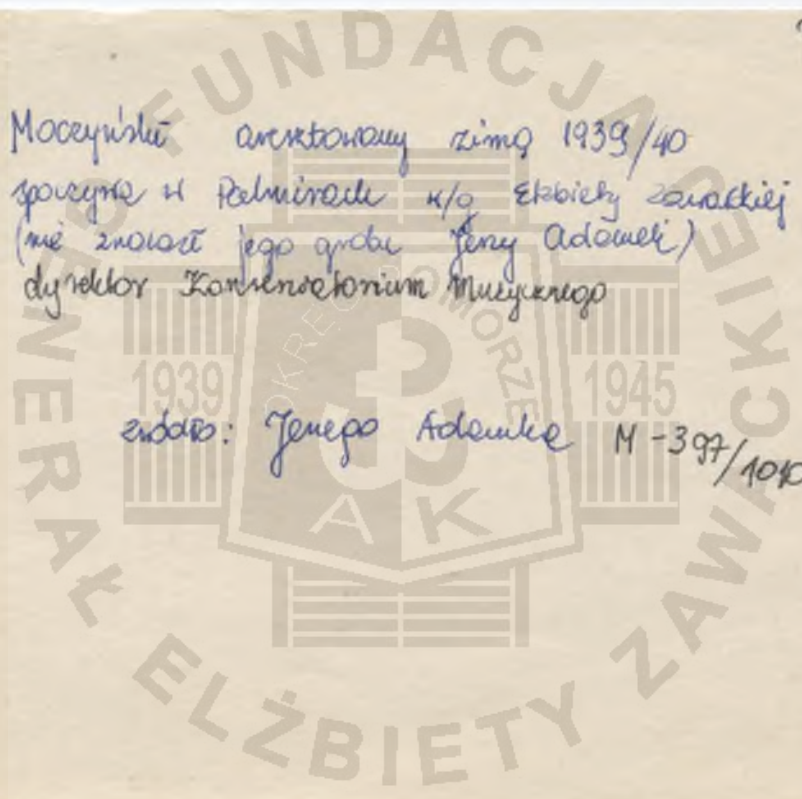 Moczyński aresztowany zimą 1939/40
spoczywa w Palmirach w/g Elżbiety Zawackiej
(nie znalazł jego grobu Jerzy Adamek)
dyrektor Konserwatorium Muzycznego
źródło: Jerzego Adamka M-397/1010
FUNDACJA GENERAŁ ELŻBIETY ZAWACKIEJ
OKRĘG POMORZE
1939 1945
AK